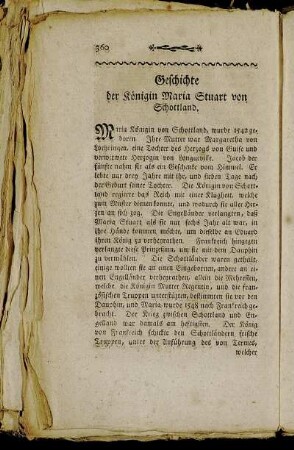 360
Geschichte
der Königin Maria Stuart von
Schottland.
Maria Königin von Schottland, wurde 1542 ge-
boren. Ihre Mutter war Margaretha von
Lothringen, eine Tochter des Herzogs von Guise und
verwittwete Herzogin von Longueville. Jacob der
fünfte nahm sie als ein Geschenke vom Himmel. Er
lebte nur drey Jahre mit ihr, und sieben Tage nach
der Geburt seiner Tochter. Die Königin von Schott-
land regierte das Reich mit einer Klugheit, welche
zum Muster dienen konnte, und wodurch sie aller Her-
zen an sich zog. Die Engelländer verlangten, daß
Maria Stuart als sie nur sechs Jahr alt war, in
ihre Hände kommen möchte, um dieselbe an Eduard
ihren König zu verheyrathen. Frankreich hingegen
verlangte diese Prinzeßinn, um sie mit dem Dauphin
zu vermählen. Die Schottländer waren getheilt,
einige wollten sie an einen Eingebornen, andere an ei-
nen Engelländer verheyrathen, allein die Mehresten,
welche die Königin Mutter Regentin, und die fran-
zösischen Truppen unterstützten, bestimmten sie vor den
Dauphin, und Maria wurde 1548 nach Frankreich ge-
bracht. Der Krieg zwischen Schottland und En-
gelland war damals am heftigsten. Der König
von Frankreich schickte den Schottländern frische
Truppen, unter der Anführung des von Termes,
welcher